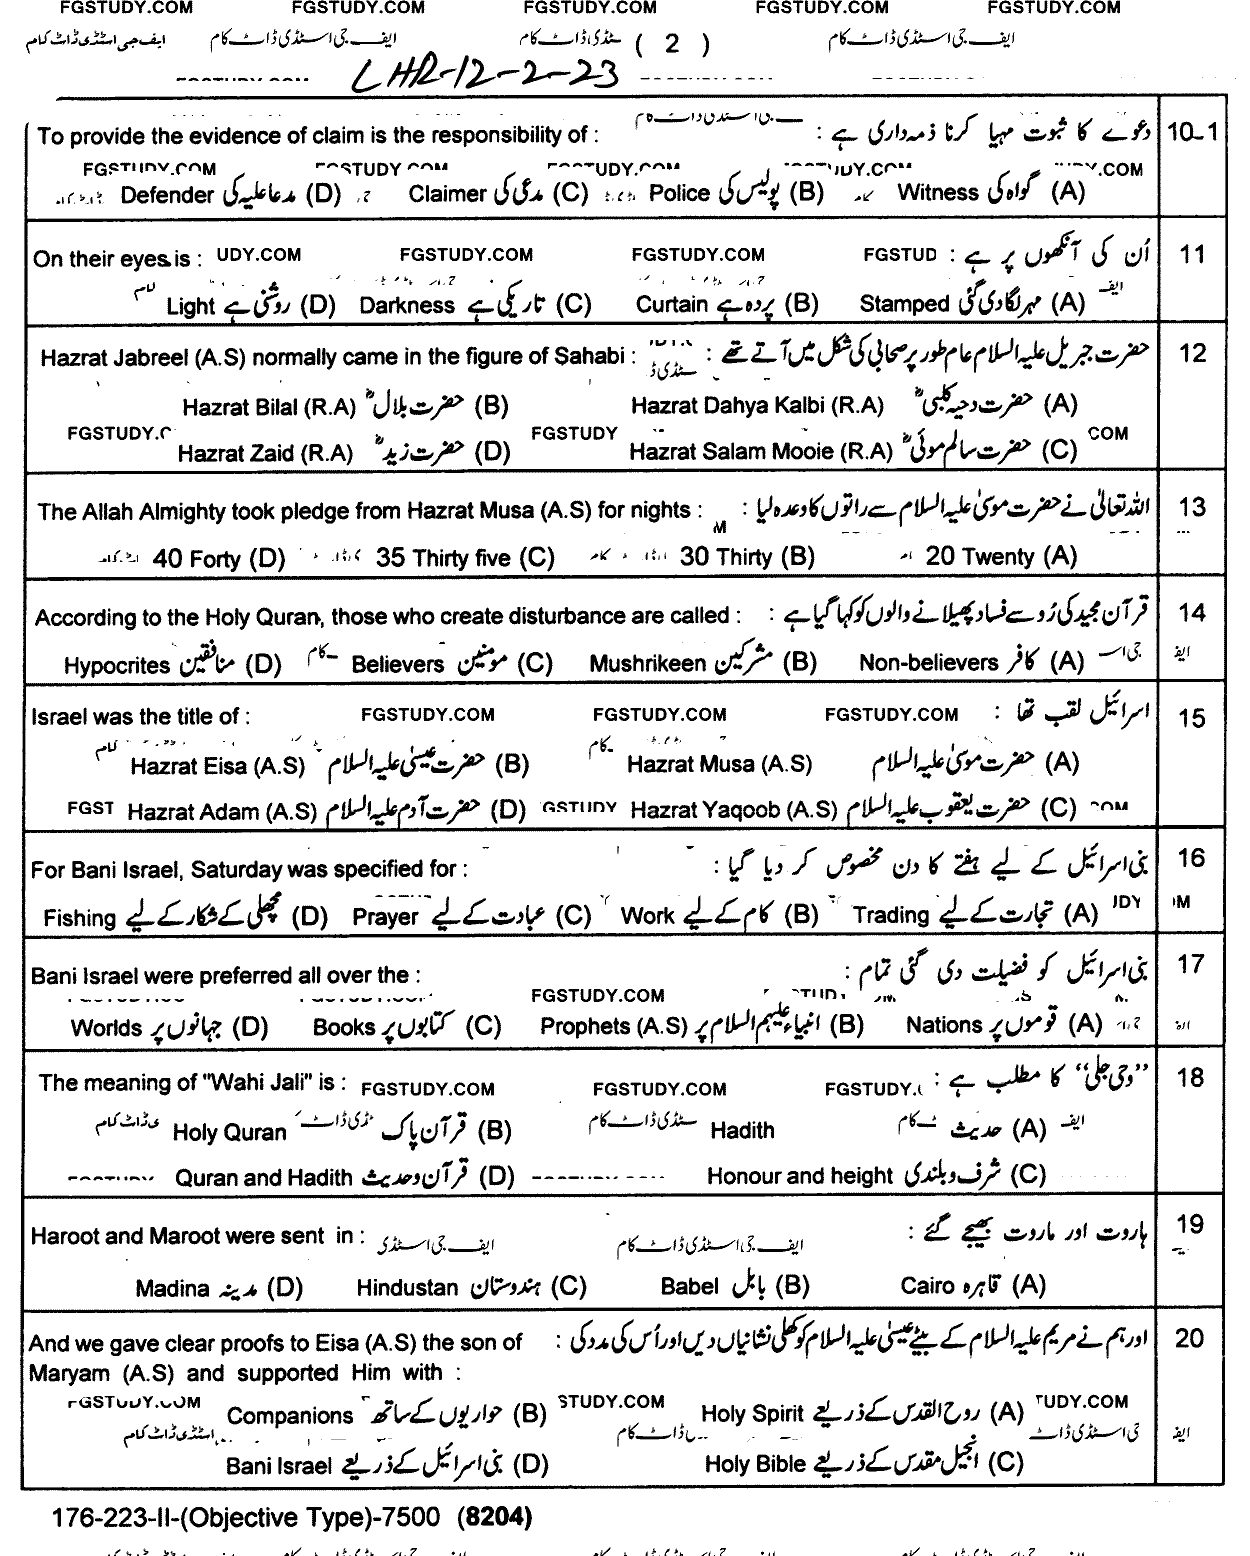 FGSTUDY.COM FGSTUDY.COM FGSTUDY.COM FGSTUDY.COM FGSTUDY.COM
ایف جی اسٹڈی ڈاٹ کام ایف جی اسٹڈی ڈاٹ کام سٹڈی ڈاٹ کام ( 2 ) ایف جی اسٹڈی ڈاٹ کام
LHR-12-2-23
To provide the evidence of claim is the responsibility of : دعوے کا ثبوت مہیا کرنا ذمہ داری ہے : 10-1
FGSTUDY.COM
Defender مدعا علیہ کی (D) Claimer مدعی کی (C) Police پولیس کی (B) Witness گواہ کی (A)
On their eyes is : UDY.COM FGSTUDY.COM FGSTUDY.COM FGSTUD اُن کی آنکھوں پر ہے : 11
Light روشنی ہے (D) Darkness تاریکی ہے (C) Curtain پردہ ہے (B) Stamped مہر لگا دی گئی (A)
Hazrat Jabreel (A.S) normally came in the figure of Sahabi : حضرت جبریل علیہ السلام عام طور پر صحابی کی شکل میں آتے تھے : 12
Hazrat Bilal (R.A) حضرت بلالؓ (B) Hazrat Dahya Kalbi (R.A) حضرت دحیہ کلبیؓ (A)
FGSTUDY.C FGSTUDY COM
Hazrat Zaid (R.A) حضرت زیدؓ (D) Hazrat Salam Mooie (R.A) حضرت سالم موئیؓ (C)
The Allah Almighty took pledge from Hazrat Musa (A.S) for nights : اللہ تعالیٰ نے حضرت موسیٰ علیہ السلام سے راتوں کا وعدہ لیا : 13
40 Forty (D) 35 Thirty five (C) 30 Thirty (B) 20 Twenty (A)
According to the Holy Quran, those who create disturbance are called : قرآن مجید کی رُو سے فساد پھیلانے والوں کو کہا گیا ہے : 14
Hypocrites منافقین (D) Believers مومنین (C) Mushrikeen مشرکین (B) Non-believers کافر (A)
Israel was the title of : FGSTUDY.COM FGSTUDY.COM FGSTUDY.COM اسرائیل لقب تھا : 15
Hazrat Eisa (A.S) حضرت عیسیٰ علیہ السلام (B) Hazrat Musa (A.S) حضرت موسیٰ علیہ السلام (A)
FGST Hazrat Adam (A.S) حضرت آدم علیہ السلام (D) GSTUDY Hazrat Yaqoob (A.S) حضرت یعقوب علیہ السلام (C)
For Bani Israel, Saturday was specified for : بنی اسرائیل کے لیے ہفتے کا دن مخصوص کر دیا گیا : 16
Fishing مچھلی کے شکار کے لیے (D) Prayer عبادت کے لیے (C) Work کام کے لیے (B) Trading تجارت کے لیے (A)
Bani Israel were preferred all over the : بنی اسرائیل کو فضیلت دی گئی تمام : 17
FGSTUDY.COM
Worlds جہانوں پر (D) Books کتابوں پر (C) Prophets (A.S) انبیاء علیہم السلام پر (B) Nations قوموں پر (A)
The meaning of "Wahi Jali" is : FGSTUDY.COM FGSTUDY.COM FGSTUDY. "وحی جلی" کا مطلب ہے : 18
Holy Quran قرآن پاک (B) Hadith حدیث (A)
Quran and Hadith قرآن و حدیث (D) Honour and height شرف و بلندی (C)
Haroot and Maroot were sent in : ایف جی اسٹڈی ایف جی اسٹڈی ڈاٹ کام ہاروت اور ماروت بھیجے گئے : 19
Madina مدینہ (D) Hindustan ہندوستان (C) Babel بابل (B) Cairo قاہرہ (A)
And we gave clear proofs to Eisa (A.S) the son of اور ہم نے مریم علیہ السلام کے بیٹے عیسیٰ علیہ السلام کو کھلی نشانیاں دیں اور اُس کی مدد کی : 20
Maryam (A.S) and supported Him with :
FGSTUDY.COM STUDY.COM TUDY.COM
Companions حواریوں کے ساتھ (B) Holy Spirit روح القدس کے ذریعے (A)
Bani Israel بنی اسرائیل کے ذریعے (D) Holy Bible انجیل مقدس کے ذریعے (C)
176-223-II-(Objective Type)-7500 (8204)